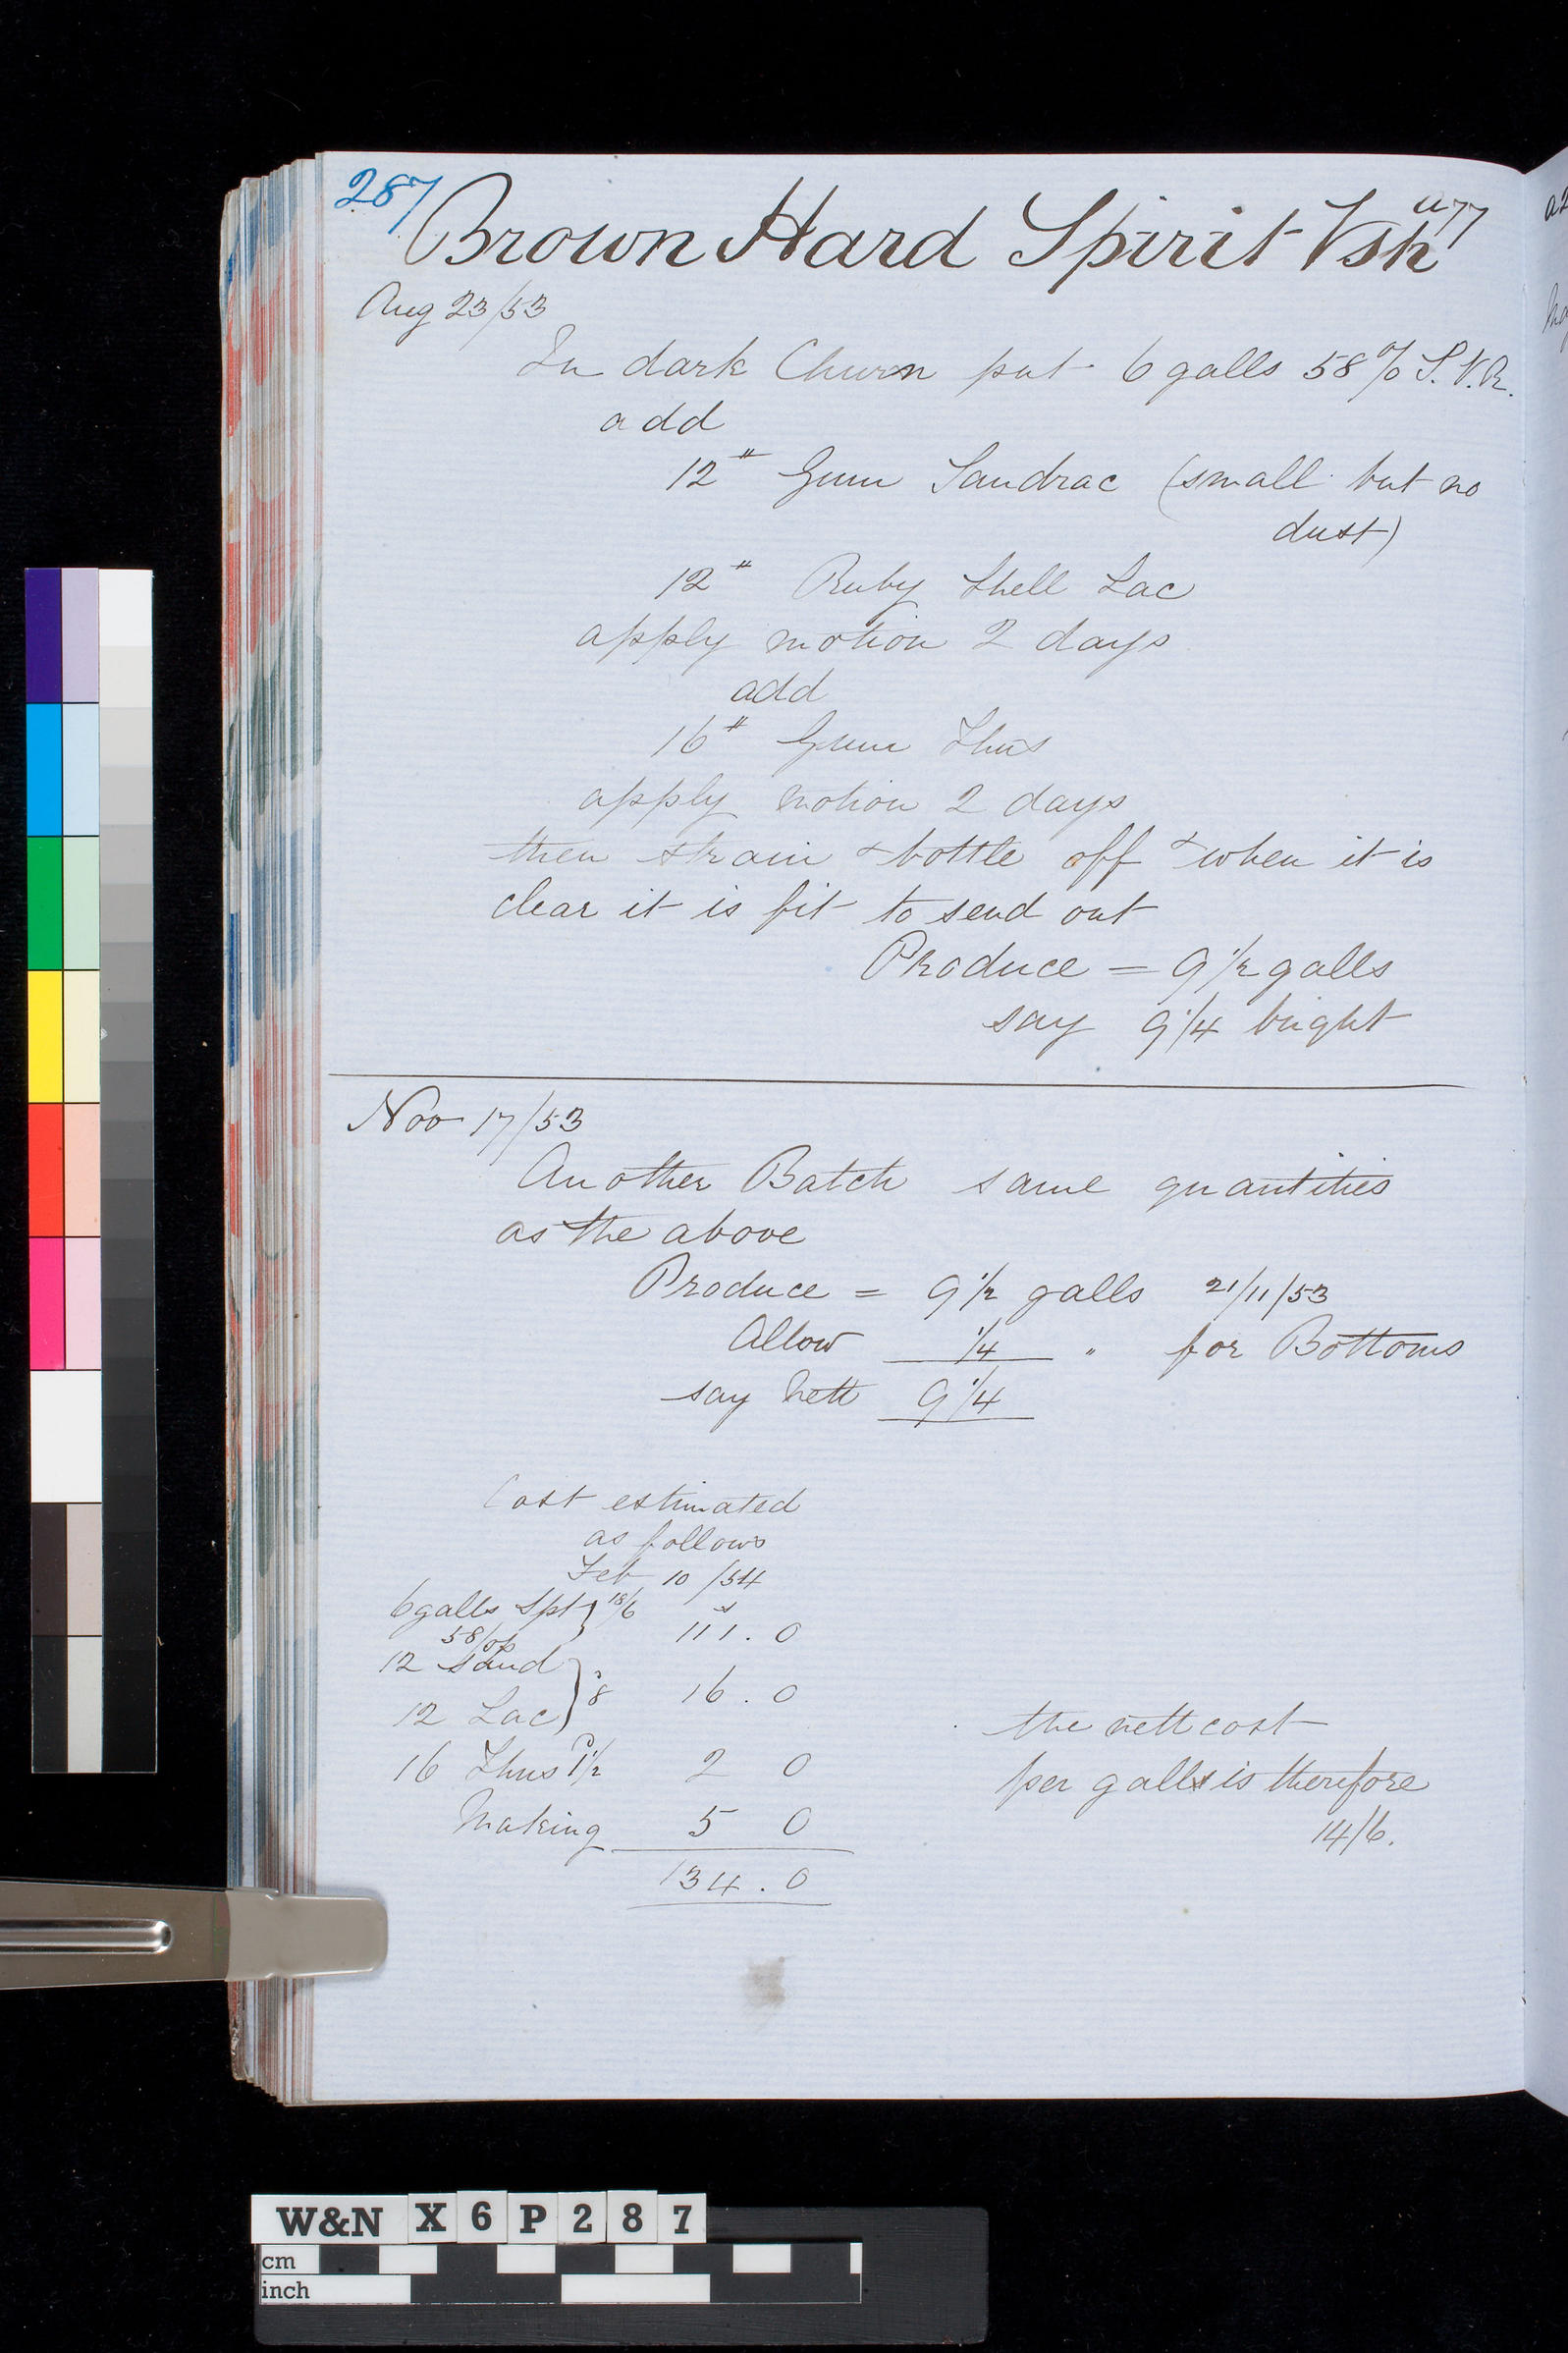 287
a77
Brown Hard Spirit Vsh
Aug 23/53
In dark Churn put 6 galls 58% S.V.R.
add
12 # Gum Sandrac (small but no
dust)
12 # Ruby Shell Lac
apply motion 2 days
add
16 # Gum Thus
apply motion 2 days
then strain & bottle off & when it is
clear it is fit to send out
Produce = 9 1/2 galls
say 9 1/4 bright
Nov 17/53
Another Batch same quantities
as the above
Produce = 9 1/2 galls 21/11/53
Allow 1/4 " for Bottoms
say nett 9 1/4
Cost estimated
as follows
Feb 10 /54
6 galls Spt } 18/6 s
58/op 111 . 0
12 Sand }
8 16 . 0
12 Lac
16 Thus 1 1/2 2 0
Making 5 0
134 . 0
the nett cost
per galls is therefore
14/6.
W&N X 6 P 2 8 7
cm
inch